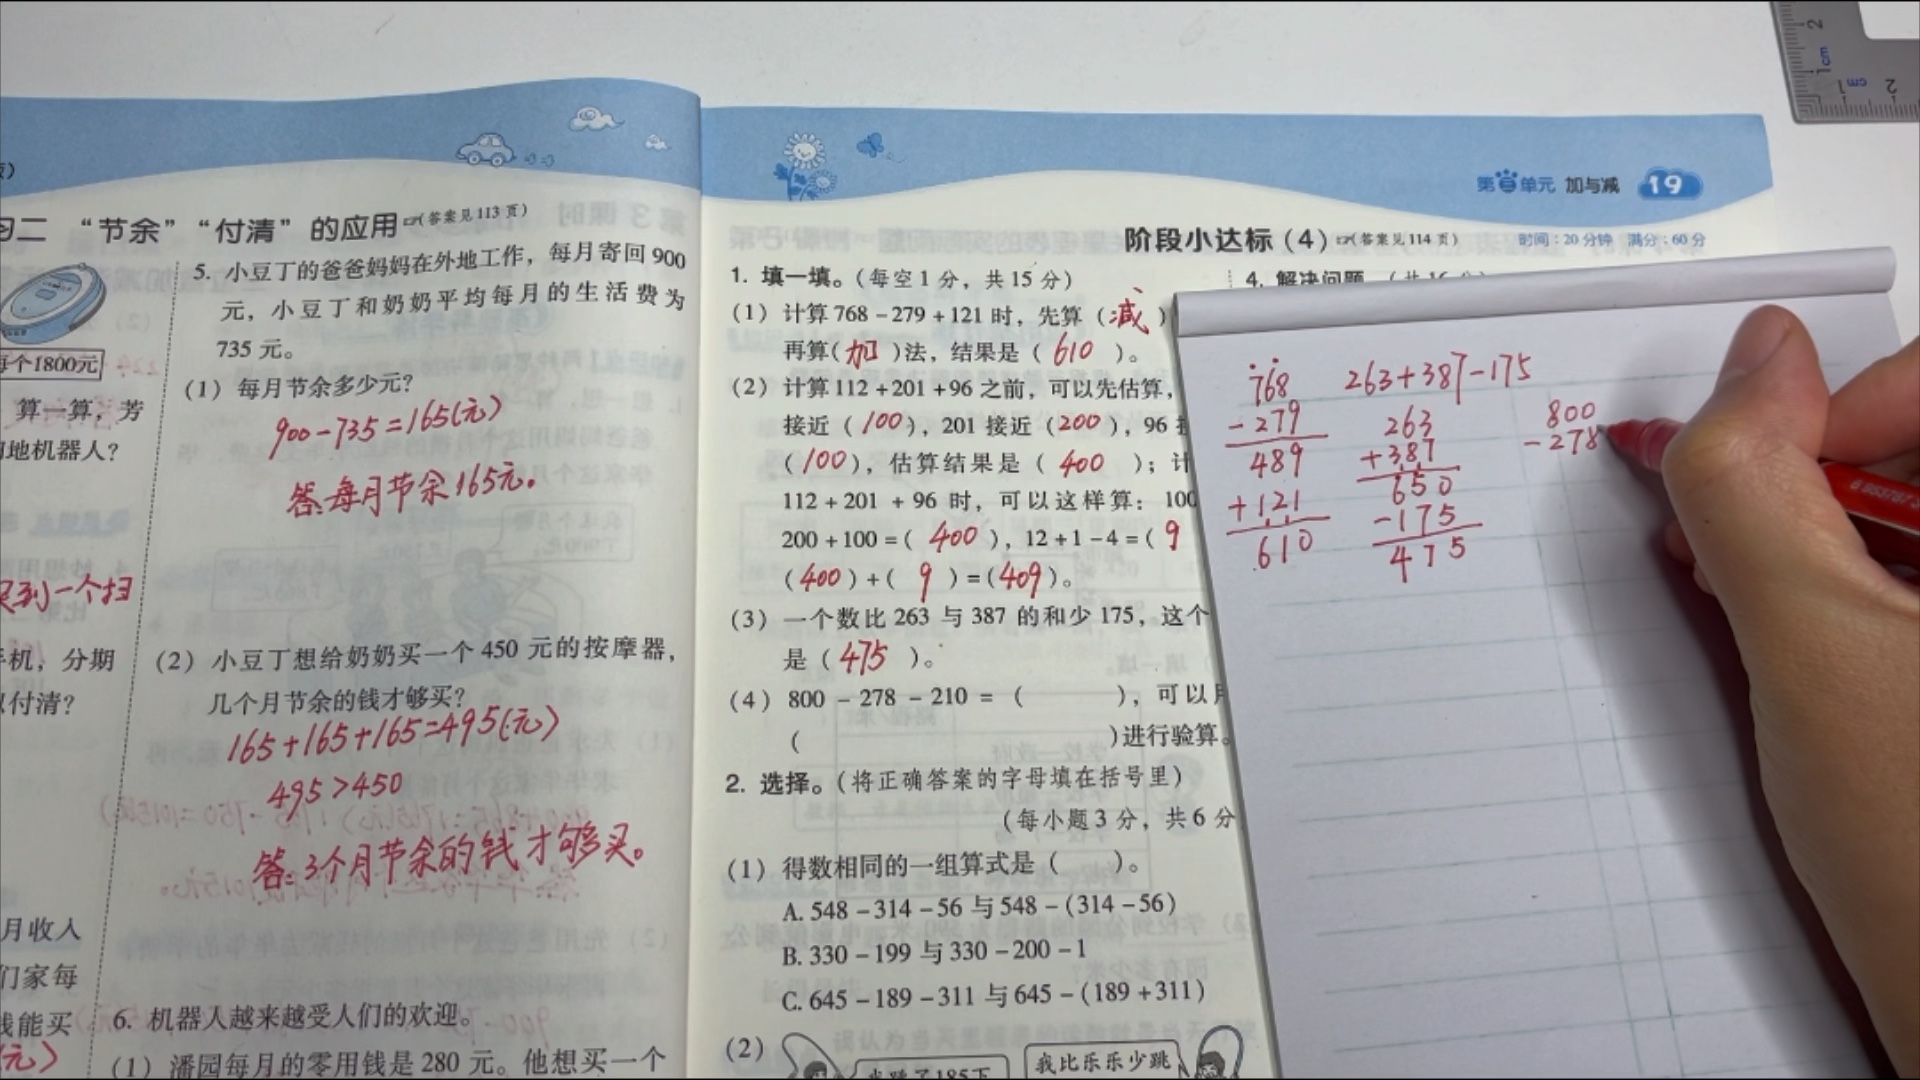 习二 “节余”“付清”的应用 (答案见113页)
每个1800元
算一算，芳
地机器人?
买到一个扫
手机，分期
付清?
月收入
们家每
钱能买
元)
5. 小豆丁的爸爸妈妈在外地工作，每月寄回900
元，小豆丁和奶奶平均每月的生活费为
735元。
(1) 每月节余多少元?
900-735=165(元)
答:每月节余165元。
(2) 小豆丁想给奶奶买一个450元的按摩器，
几个月节余的钱才够买?
165+165+165=495(元)
495>450
答:3个月节余的钱才够买。
6. 机器人越来越受人们的欢迎。
(1) 潘园每月的零用钱是280元。他想买一个
第二单元 加与减 19
阶段小达标(4) (答案见114页) 时间:20分钟 满分:60分
1. 填一填。(每空1分，共15分)
(1) 计算768-279+121时，先算(减)
再算(加)法，结果是(610)。
(2) 计算112+201+96之前，可以先估算，
接近(100)，201接近(200)，96接
(100)，估算结果是(400)；计
112+201+96时，可以这样算: 100
200+100=(400)，12+1-4=(9
(400)+(9)=(409)。
(3) 一个数比263与387的和少175，这个
是(475)。
(4) 800-278-210=( )，可以用
( )进行验算。
2. 选择。(将正确答案的字母填在括号里)
(每小题3分，共6分
(1) 得数相同的一组算式是( )。
A. 548-314-56与548-(314-56)
B. 330-199与330-200-1
C. 645-189-311与645-(189+311)
(2)
我比乐乐少跳
4. 解决问题
768
-279
489
+121
610
263+387-175
263
+387
650
-175
475
800
-278
cm
1
2
cm
1
2